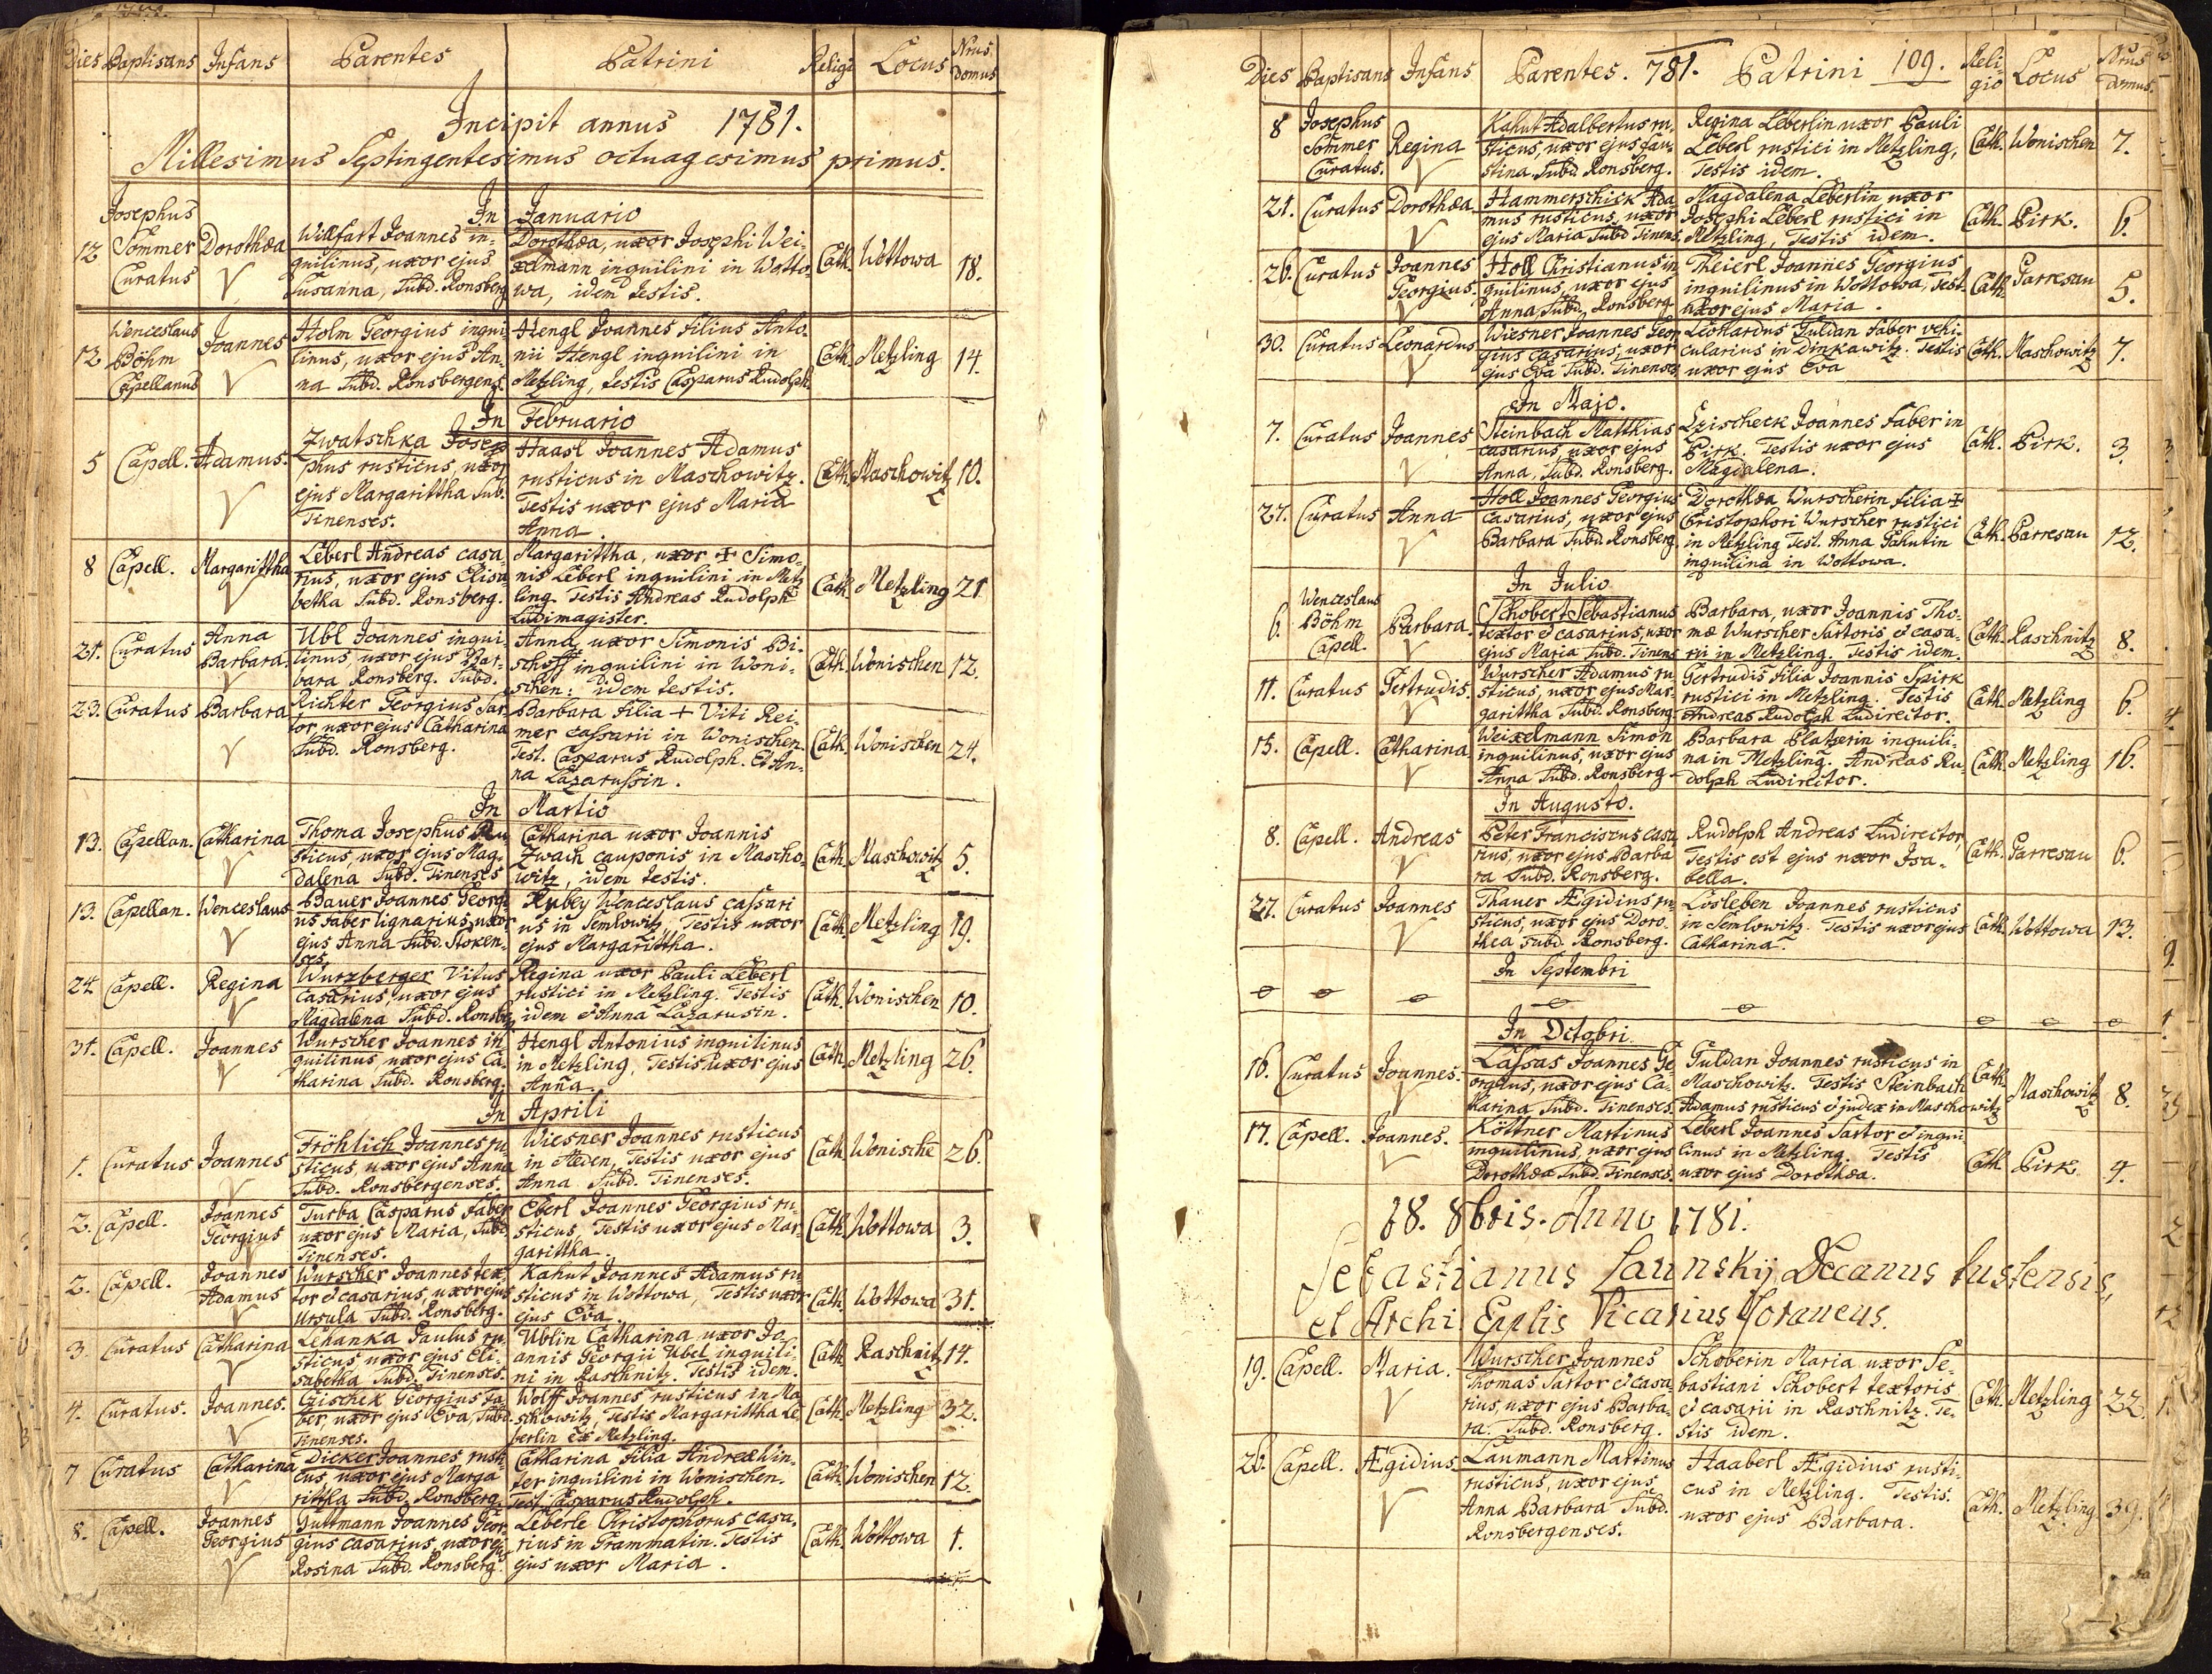 Dies Baptisans Infans Parentes Patrini Religi Locus Nrus domus
Incipit annus 1781.
Millesimus Septingentesimus octuagesimus primus.
In Januario
12 Josephus Sommer Curatus Dorothæa
Willfart Joannes in-
quilinus, uxor ejus
Susanna, Subd. Ronsberg
Dorothæa, uxor Josephi Wei-
xelmann inquilini in Wotto-
wa, idem testis.
Cath. Wottowa 18.
12 Wenceslaus Böhm Capellanus Joannes
Holm Georgius inqui-
linus, uxor ejus An-
na Subd. Ronsbergens.
Hengl Joannes filius Anto-
nii Hengl inquilini in
Metzling, testis Casparus Rudolph
Cath. Metzling 14.
In Februario
5 Capell. Adamus.
Zwatschka Jose-
phus rusticus, uxor
ejus Margarittha Sub.
Tinenses.
Haasl Joannes Adamus
rusticus in Maschowitz.
Testis uxor ejus Maria
Anna.
Cath. Maschowitz 10.
8 Capell. Margarittha
Leberl Andreas casa-
rius, uxor ejus Elisa-
betha Subd. Ronsberg.
Margarittha, uxor + Simo-
nis Leberl inquilini in Metz
ling. Testis Andreas Rudolph
Ludimagister.
Cath. Metzling 21
21. Curatus Anna Barbara.
Ubl Joannes inqui-
linus, uxor ejus Bar-
bara Ronsberg. Subd.
Anna, uxor Simonis Bi-
schoff inquilini in Woni-
schen: idem testis.
Cath. Wonischen 12.
23. Curatus Barbara
Richter Georgius Sar-
tor, uxor ejus Catharina
Subd. Ronsberg.
Barbara filia + Viti Rei-
mer cassarii in Wonischen.
Test. Casparus Rudolph. Et An-
na Lazarussin.
Cath. Wonischen 24.
In Martio
13. Capellan. Catharina
Thoma Josephus Ru-
sticus, uxor ejus Mag-
dalena Subd. Tinenses
Catharina uxor Joannis
Zwach cauponis in Mascho-
witz, idem testis.
Cath. Maschowitz 5.
13. Capellan. Wenceslaus
Bauer Joannes Georgi-
us faber lignarius, uxor
ejus Anna Subd. Stoken-
ses.
Rubey Wenceslaus cassari
us in Semlowitz. Testis uxor
ejus Margarittha.
Cath. Metzling 19.
24. Capell. Regina
Wurzberger Vitus
Casarius, uxor ejus
Magdalena Subd. Ronsberg
Regina uxor Pauli Leberl
rustici in Metzling. Testis
idem & Anna Lazarusin.
Cath. Wonischen 10.
31. Capell. Joannes
Wurscher Joannes in-
quilinus, uxor ejus Ca-
tharina Subd. Ronsberg.
Hengl Antonius inquilinus
in Metzling, Testis uxor ejus
Anna.
Cath. Metzling 26.
In Aprili
1. Curatus Joannes
Fröhlich Joannes ru-
sticus, uxor ejus Anna
Subd. Ronsbergenses.
Wiesner Joannes rusticus
in Heden, Testis uxor ejus
Anna Subd. Tinenses.
Cath. Wonische 26.
2. Capell. Joannes Georgius
Turba Casparus faber
uxor ejus Maria, Subd.
Tinenses.
Eberl Joannes Georgius ru-
sticus. Testis uxor ejus Mar-
garittha.
Cath. Wottowa 3.
2. Capell. Joannes Adamus
Wurscher Joannes tex-
tor & casarius, uxor ejus
Ursula Subd. Ronsberg.
Kahut Joannes Adamus ru-
sticus in Wottowa, Testis uxor
ejus Eva.
Cath. Wottowa 31.
3. Curatus Catharina
Lehanka Paulus ru-
sticus, uxor ejus Eli-
sabetha Subd. Tinenses.
Ublin Catharina uxor Jo-
annis Georgii Ubel inquili-
ni in Raschnitz. Testis idem.
Cath. Raschnitz 14.
4. Curatus. Joannes.
Czischek Georgius Fa-
ber uxor ejus Eva, Subd.
Tinenses.
Wolff Joannes rusticus in Ma-
schowitz, Testis Margarittha Le-
berlin ex Metzling.
Cath. Metzling 32.
7 Curatus Catharina
Dicker Joannes rusti-
cus, uxor ejus Marga
rittha Subd. Ronsberg.
Catharina filia Andreæ Win-
ter inquilini in Wonischen.
Test. Casparus Rudolph.
Cath. Wonischen 12.
8. Capell. Joannes Georgius
Guttmann Joannes Geor-
gius casarius, uxor ejus
Rosina Subd. Ronsberg.
Leberle Christophorus casa-
rius in Grammatin. Testis
ejus uxor Maria.
Cath. Wottowa 1.
Dies Baptisans Infans Parentes. 781. Patrini 109. Reli-gio Locus Nrus domus.
8 Josephus Sommer Curatus. Regina
Kahut Adalbertus ru-
sticus, uxor ejus Fau-
stina Subd. Ronsberg.
Regina Leberlin uxor Pauli
Leberl rustici in Metzling,
Testis idem.
Cath. Wonischen 7.
21. Curatus Dorothæa
Hammerschick Ada-
mus rusticus, uxor
ejus Maria Subd Tinens.
Magdalena Leberlin uxor
Josephi Leberl rustici in
Metzling, Testis idem.
Cath. Pirk. 6.
26. Curatus Joannes Georgius.
Holl Christianus in
quilinus, uxor ejus
Anna Subd. Ronsberg.
Theierl Joannes Georgius
inquilinus in Wottowa, Test.
uxor ejus Maria.
Cath. Parresau 5.
30. Curatus Leonardus
Wiesner Joannes Geor-
gius casarius, uxor
ejus Eva Subd. Tinenses
Leonardus Guldan Faber vehi-
cularius in Dinkawitz. Testis
uxor ejus Eva
Cath. Maschowitz 7.
In Majo.
7. Curatus Joannes
Steinbach Matthias
casarius, uxor ejus
Anna, Subd. Ronsberg.
Czischeck Joannes Faber in
Pirk. Testis uxor ejus
Magdalena.
Cath. Pirk. 3.
27. Curatus Anna
Holl Joannes Georgius
Casarius, uxor ejus
Barbara Subd. Ronsberg.
Dorothæa Wurscherin filia +
Cristophori Wurscher rustici
in Metzling Test. Anna Kahutin
inquilina in Wottowa.
Cath. Parresau 12.
In Julio
6. Wenceslaus Böhm Capell. Barbara.
Schobert Sebastianus
textor & casarius, uxor
ejus Maria Subd. Tinens
Barbara, uxor Joannis Tho-
mæ Wurscher Sartoris & casa-
rii in Metzling. Testis idem.
Cath. Raschnitz 8.
11. Curatus Gertrudis.
Wurscher Adamus ru-
sticus, uxor ejus Mar-
garittha Subd. Ronsberg.
Gertrudis filia Joannis Spirk
rustici in Metzling. Testis
Andreas Rudolph Ludirector.
Cath. Metzling 6.
15. Capell. Catharina
Weixelmann Simon
inquilinus, uxor ejus
Anna Subd. Ronsberg.
Barbara Platzerin inquili-
na in Metzling. Andreas Ru-
dolph Ludirector.
Cath. Metzling 16.
In Augusto.
8. Capell. Andreas
Peter Franciscus casa
rius, uxor ejus Barba
ra Subd. Ronsberg.
Rudolph Andreas Ludirector,
Testis est ejus uxor Isa-
bella.
Cath. Parresau 6.
27. Curatus Joannes
Thauer Ægidius ru-
sticus, uxor ejus Doro-
thea Subd. Ronsberg.
Losleben Joannes rusticus
in Semlowitz. Testis uxor ejus
Catharina.
Cath. Wottowa 13.
In Septembri
In Octobri.
16. Curatus Joannes.
Lassas Joannes Ge-
orgius, uxor ejus Ca-
tharina Subd. Tinenses.
Guldan Joannes rusticus in
Maschowitz. Testis Steinbach
Adamus rusticus & judex in Maschowitz
Cath. Maschowitz 8.
17. Capell. Joannes.
Köttner Martinus
inquilinus, uxor ejus
Dorothæa Subd. Tinenses.
Leberl Joannes Sartor & inqui-
linus in Metzling. Testis
uxor ejus Dorothæa.
Cath. Pirk. 4.
18. 8bris. Anno 1781.
Sebastianus Launskij Decanus
et Archi Eplis Vicarius Foraneus.
19. Capell. Maria.
Wurscher Joannes
Thomas Sartor & casa-
rius, uxor ejus Barba-
ra. Subd. Ronsberg.
Schoberin Maria uxor Se-
bastiani Schobert textoris
& casarii in Raschnitz. Te-
stis idem.
Cath. Metzling 22.
26. Capell. Ægidius
Laumann Martinus
rusticus, uxor ejus
Anna Barbara Subd.
Ronsbergenses.
Haaberl Ægidius rusti-
cus in Metzling. Testis.
uxor ejus Barbara.
Cath. Metzling 39.